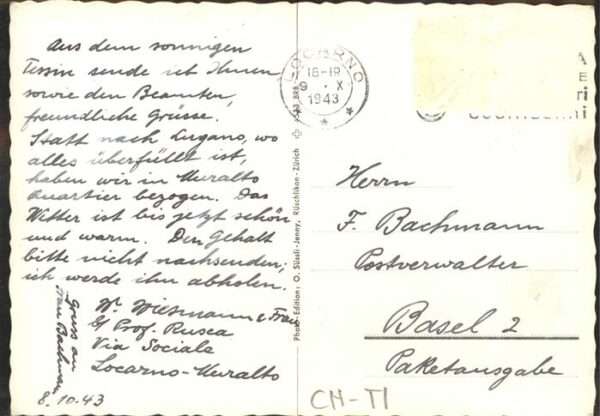 Aus dem sonnigen
Tessin sende ich Ihnen
sowie den Beamten,
freundliche Grüsse.
Statt nach Lugano, wo
alles überfüllt ist,
haben wir in Muralto
Quartier bezogen. Das
Wetter ist bis jetzt schön
und warm. Den Gehalt
bitte nicht nachsenden;
ich werde ihn abholen.
W. Wiesmann & Frau
Prof. Rusca
Via Sociale
Locarno-Muralto
Gruss an
Frau Bachmann
8.10.43
Photo-Edition: O. Süssli-Jenny, Rüschlikon-Zürich
LOCARNO
18-19
9. X
1943
Herrn
F. Bachmann
Postverwalter
Basel 2
Paketausgabe
CH-TI